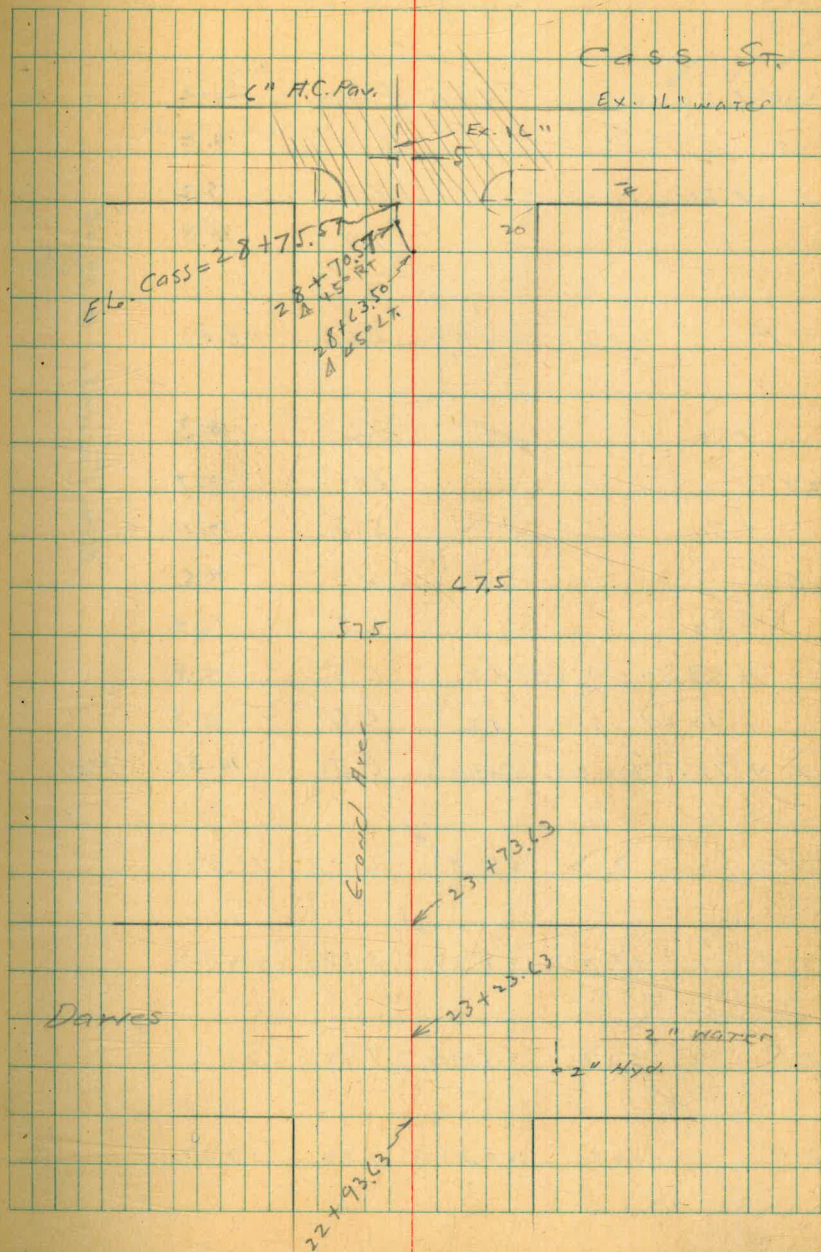 Cass St.
6" A.C. Pav.
Ex. 16" water
Ex. 16"
5
20
E.L. Cass = 28+75.57
28+70.57
Δ 45° RT
28+63.50
Δ 45° LT.
67.5
57.5
Grand Ave
23+73.63
23+23.63
2" water
2" Hyd.
22+93.63